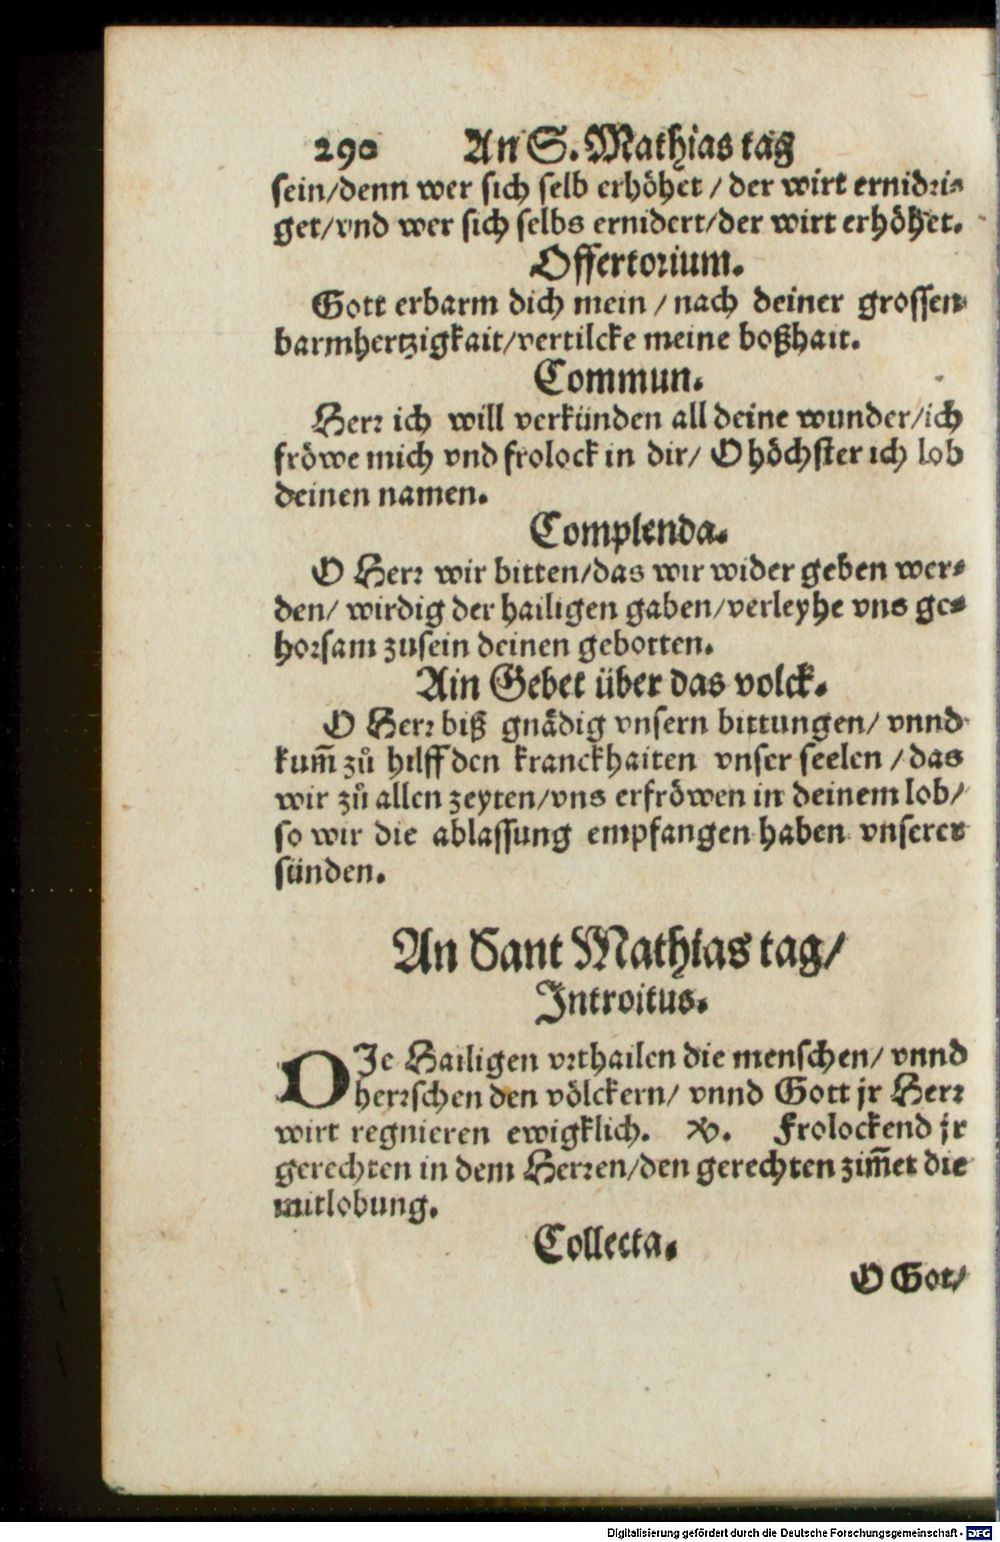 290 An S. Mathias tag
sein/denn wer sich selb erhöhet / der wirt ernidri-
get/vnd wer sich selbs ernidert/der wirt erhöhet.
Offertorium.
Gott erbarm dich mein / nach deiner grossen
barmhertzigkait/vertilcke meine boßhait.
Commun.
Herr ich will verkünden all deine wunder/ich
fröwe mich vnd frolock in dir/ O höchster ich lob
deinen namen.
Complenda.
O Herr wir bitten/das wir wider geben wer-
den/ wirdig der hailigen gaben/verleyhe vns ge-
horsam zusein deinen gebotten.
Ain Gebet über das volck.
O Herr biß gnädig vnsern bittungen/ vnnd
kum̃ zů hilff den kranckhaiten vnser seelen / das
wir zů allen zeyten/vns erfröwen in deinem lob/
so wir die ablassung empfangen haben vnserer
sünden.
An Sant Mathias tag/
Introitus.
DIe Hailigen vrthailen die menschen/ vnnd
herrschen den völckern/ vnnd Gott jr Herr
wirt regnieren ewigklich. ℣. Frolockend jr
gerechten in dem Herren/den gerechten zim̃et die
mitlobung.
Collecta.
O Got/
Digitalisierung gefördert durch die Deutsche Forschungsgemeinschaft - DFG